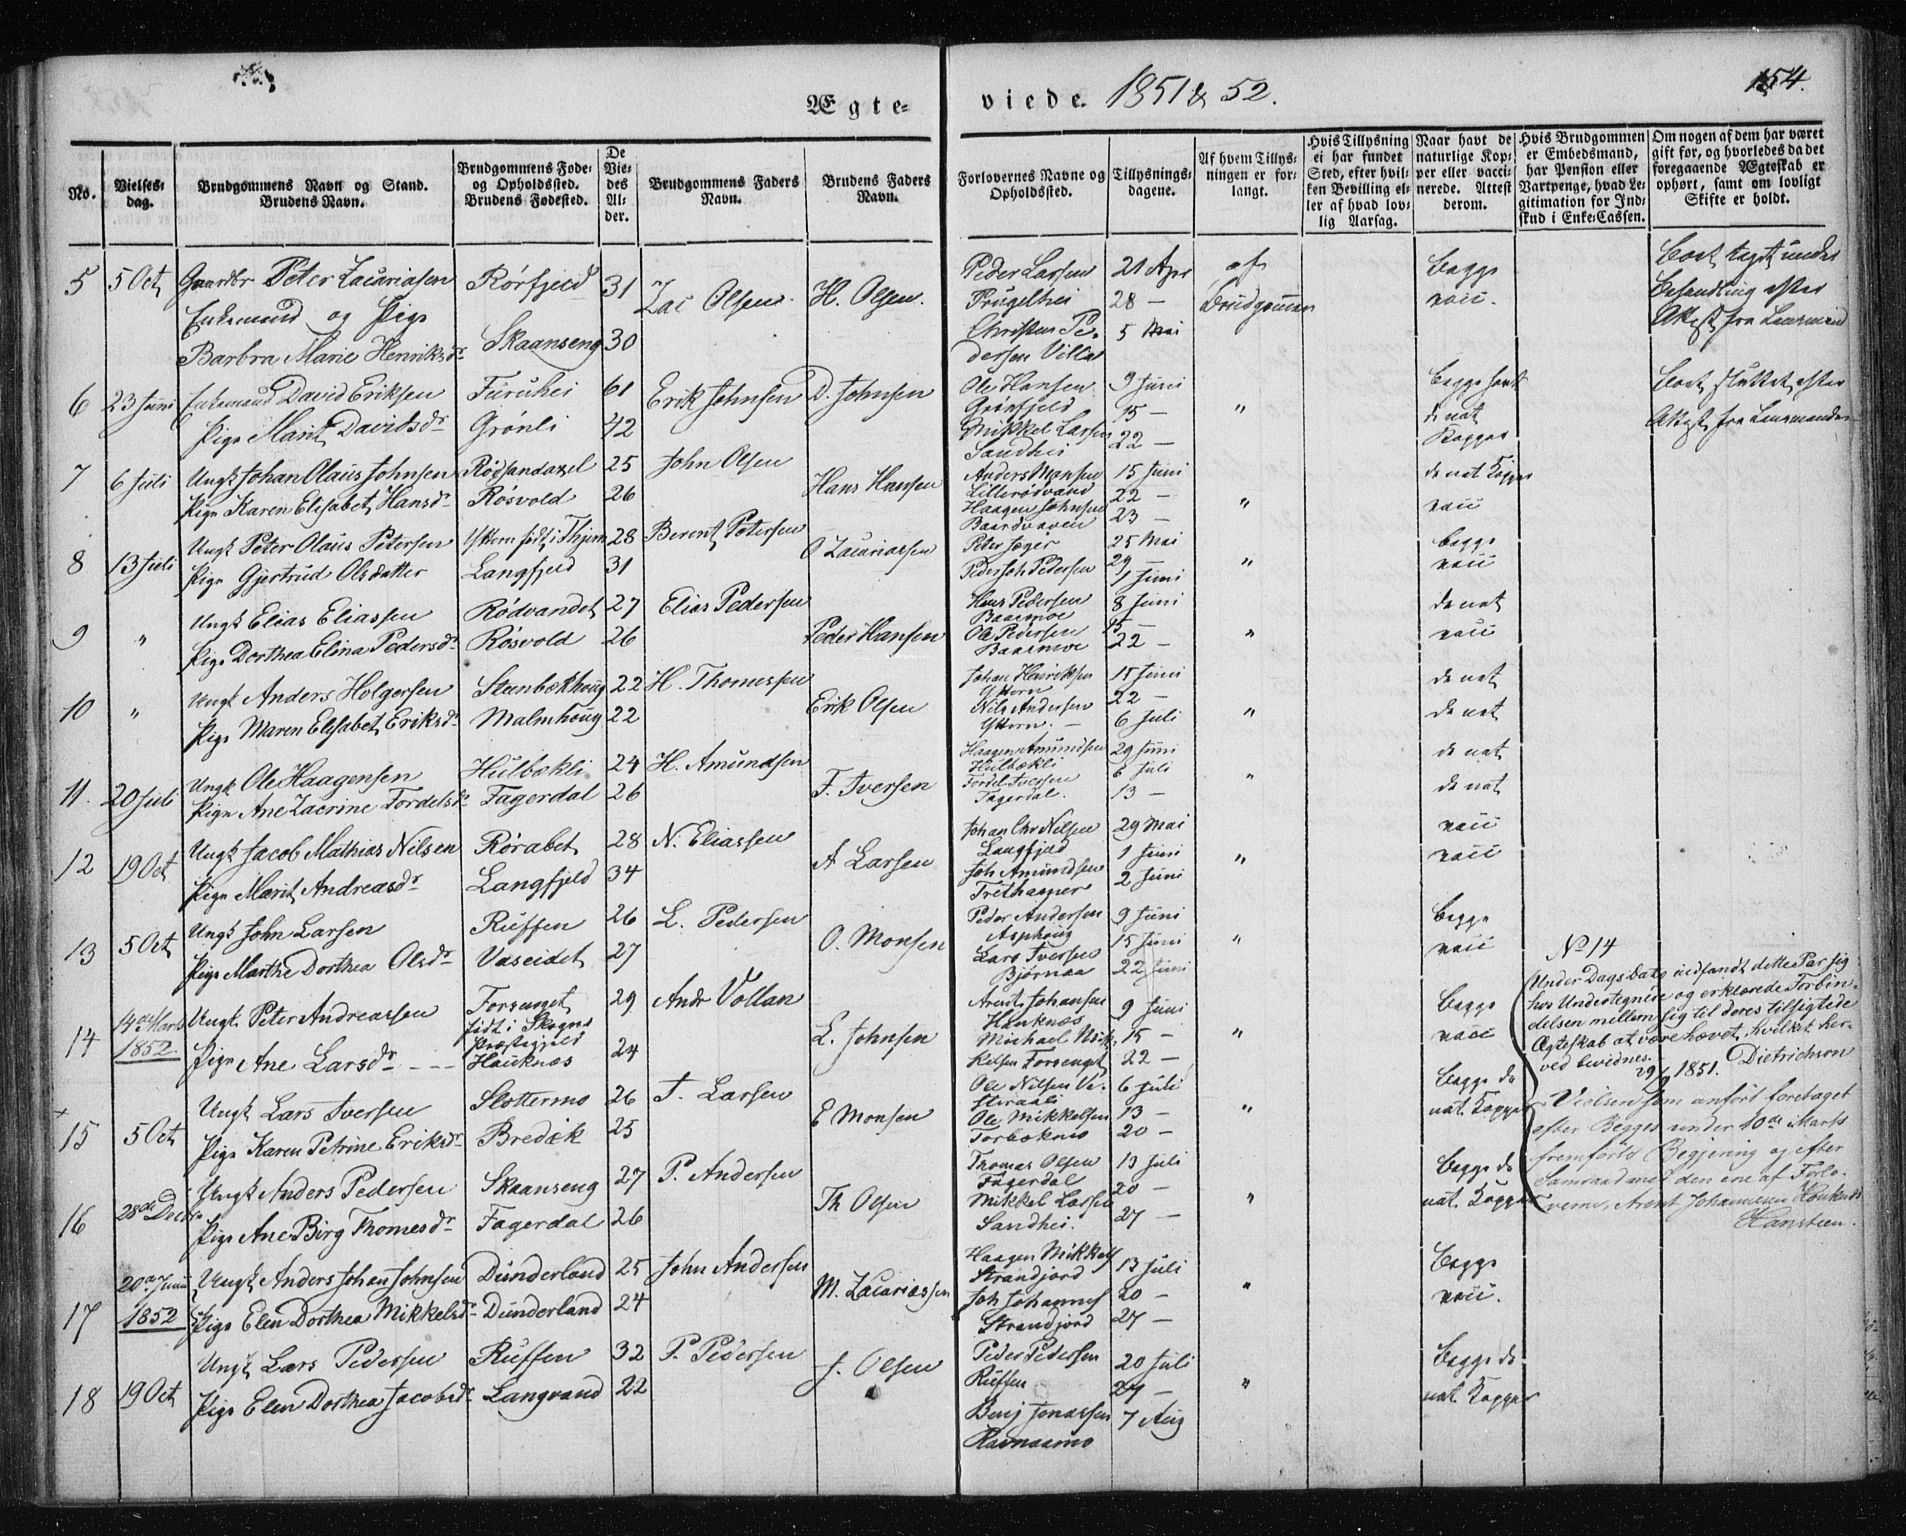 Ægte-viede. 1851 & 52.
154.
No.
Vielses-dag.
Brudgommens Navn og Stand.
Brudens Navn.
Brudgommens Føde-
og Opholdssted.
Brudens Fødested.
De
Vie-
des
Al-
der.
Brudgommens Faders
Navn.
Brudens Faders
Navn.
Forlovernes Navne og
Opholdssted.
Tillysnings-
dagene.
Af hvem Tillys-
ningen er for-
langt.
Hvis Tillysning
ei har fundet
Sted, efter hvil-
ken Bevilling el-
ler af hvad lov-
lig Aarsag.
Naar havt de
naturlige Kop-
per eller vacci-
nerede. Attest
derom.
Hvis Brudgommen
er Embedsmand,
har Pension eller
Vartpenge, hvad Le-
gitimation for Ind-
skud i Enke-Cassen.
Om nogen af dem har været
gift før, og hvorledes da det
foregaaende Ægteskab er
ophørt, samt om lovligt
Skifte er holdt.
5 5 Oct Gaardbr Peter Zacariasen Rørfjeld 31 Zac Olsen H. Olsen.
Enkemand og Pige
Barbra Marie Henriksdr Skaanseng 30
Peder Larsen 21 Apr af Begge Boet taget under
28 — Brudgommen vacc. Behandling efter
Christen Pe- 5 Mai Attest fra Lensmand
dersen
6 23 Juni Enkemand David Eriksen Furuhei 61 Erik Johnsen D. Johnsen
Pige Marit Davidsdr Grønli 42
Ole Hansen 9 Juni Begge havt Boet sluttet efter
Grønfjeld 15 — " de nat Attest fra Lensmanden
Mikkel Larsen 22 — Kopper
Sandhei
7 6 Juli Ungk Johan Olaus Johnsen 25 John Olsen Hans Hansen
Pige Karen Elisabet Hansdr Røsvold 26
15 Juni de nat Kopper
Lillerødvand 22 — " vacc
Haagen Johnsen 23 —
8 13 Juli Ungk Peter Olaus Petersen 28 Berent Petersen O Zacariassen
Pige Gjertrud Olsdatter Langfjeld 31
Peter Jæger 25 Mai begge
Peder Joh Pedersen 29 — " vacc
1 Juni
9 " Ungk Elias Eliassen Rødvandet 27 Elias Pedersen Peder Hansen
Pige Dorthea Elina Pedersdr Røsvold 26
Hans Pedersen 8 Juni de nat
Baasmoe 15 —
Ole Pedersen 22 — " vacc
Baasmoe
10 " Ungk Anders Holgersen Stenbækhoug 22 H. Thomessen Erik Olsen
Pige Maren Elisabet Eriksdr Malmhoug 22
Johan Henriksen 15 Juni de nat
Ytteren 22 —
Nils Andersen 6 Juli " de nat
Ytteren.
11. 20 Juli Ungk Ole Haagensen Hulbækli 24 H. Amundsen F. Iversen
Pige Ane Zacrine Fordelsdr Fagerdal 26
Haagen Amundsen 29 Juni de nat
Hulbækli 6 Juli "
Fordel Iversen 13 — de nat
Fagerdal.
12 19 Oct Ungk Jacob Mathias Nilsen Rørabet 28 N. Eliassen A Larsen
Pige Marit Andreasdr Langfjeld 34
Johan Chr Nilsen 29 Mai vacc
Langfjeld 1 Juni " vacc
Joh Amundsen 2 Juni
13 5 Oct Ungk John Larsen Ruffen 26 L. Pedersen O. Monsen
Pige Marthe Dorthea Olsdr Vaseidet 27
Peder Andersen 9 Juni begge
Asphoug 15 Juni " vacc
Lars Iversen 22 Juni
Bjørnaa
14 14de Marts 1852 Ungk Peter Andreassen Forsenget 29 Andr Vollan L. Johnsen
født i Skogns
Præstegjeld
Pige Ane Larsdr Hauknæs 24
Arent Johansen 9 Juni Begge
Hauknæs 15 — " vacc
22 —
No 14
Under Dags Dato indfandt dette Par sig
hos Undertegnede og erklærede Forbin-
delsen mellem sig til deres tilsigtede
Ægteskab at være hævet, hvilket her-
ved bevidnes.
29/9 1851. Dietrichson
Vielsen som anført foretaget
efter Begges under 10de Marts
fremførte Begjering og efter
Samraad med den ene af Forlo-
verne, Arent Johannesen Hauknæs
Hansteen.
15 5 Oct Ungk Lars Iversen Slottermo 26 I. Larsen E Monsen
Pige Karen Petrine Eriksdr Bredek 25
Ole Nilsen 6 Juli Begge de
Ole Mikkelsen 13 — " nat. Kopper
Torbækmo 20 —
16 28de Decbr Ungk Anders Pedersen Skaanseng 27 P. Andersen Th Olsen
Pige Ane Birg Thomesdr Fagerdal 26
Thomas Olsen 13 Juli Begge de
Fagerdal 20 —
Mikkel Larsen 27 — " nat. Kopper
Sandhei.
17 20de Juni 1852 Ungk Anders Johan Johnsen Dunderland 25 John Andersen M. Zacariassen
Pige Elen Dorthea Mikkelsdr Dunderland 24
Haagen Mikkels 13 Juli Begge
Strandjord 20 — " vacc.
Joh Johannes 27 —
Strandjord
18 19 Oct Ungk Lars Pedersen Ruffen 32 P. Pedersen J. Olsen
Pige Elen Dorthea Jacobsdr Langvand 22
Peder Pedersen 20 Juli Begge de
Ruffen 27 — " nat. Kopper
Benj Jonassen 7 Aug
Ravnaamo